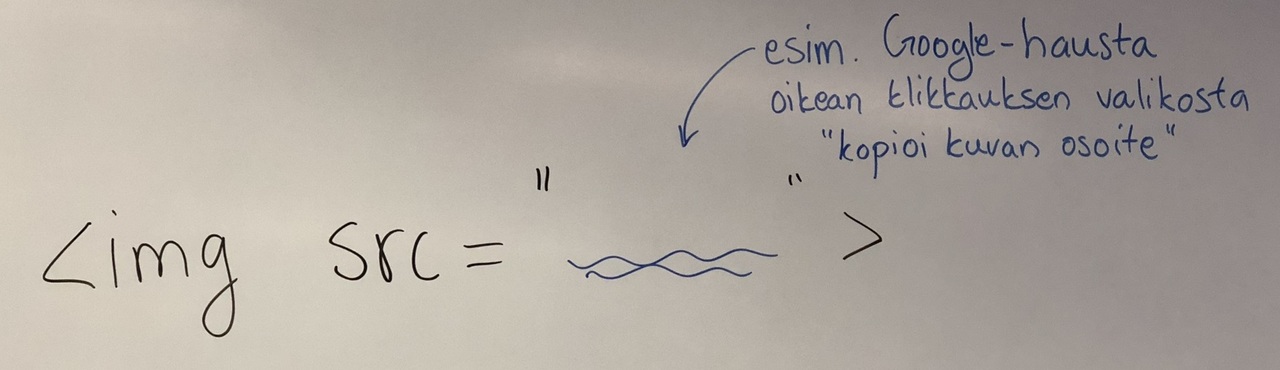 esim. Google-hausta
oikean klikkauksen valikosta
"kopioi kuvan osoite"
<img src=" ">